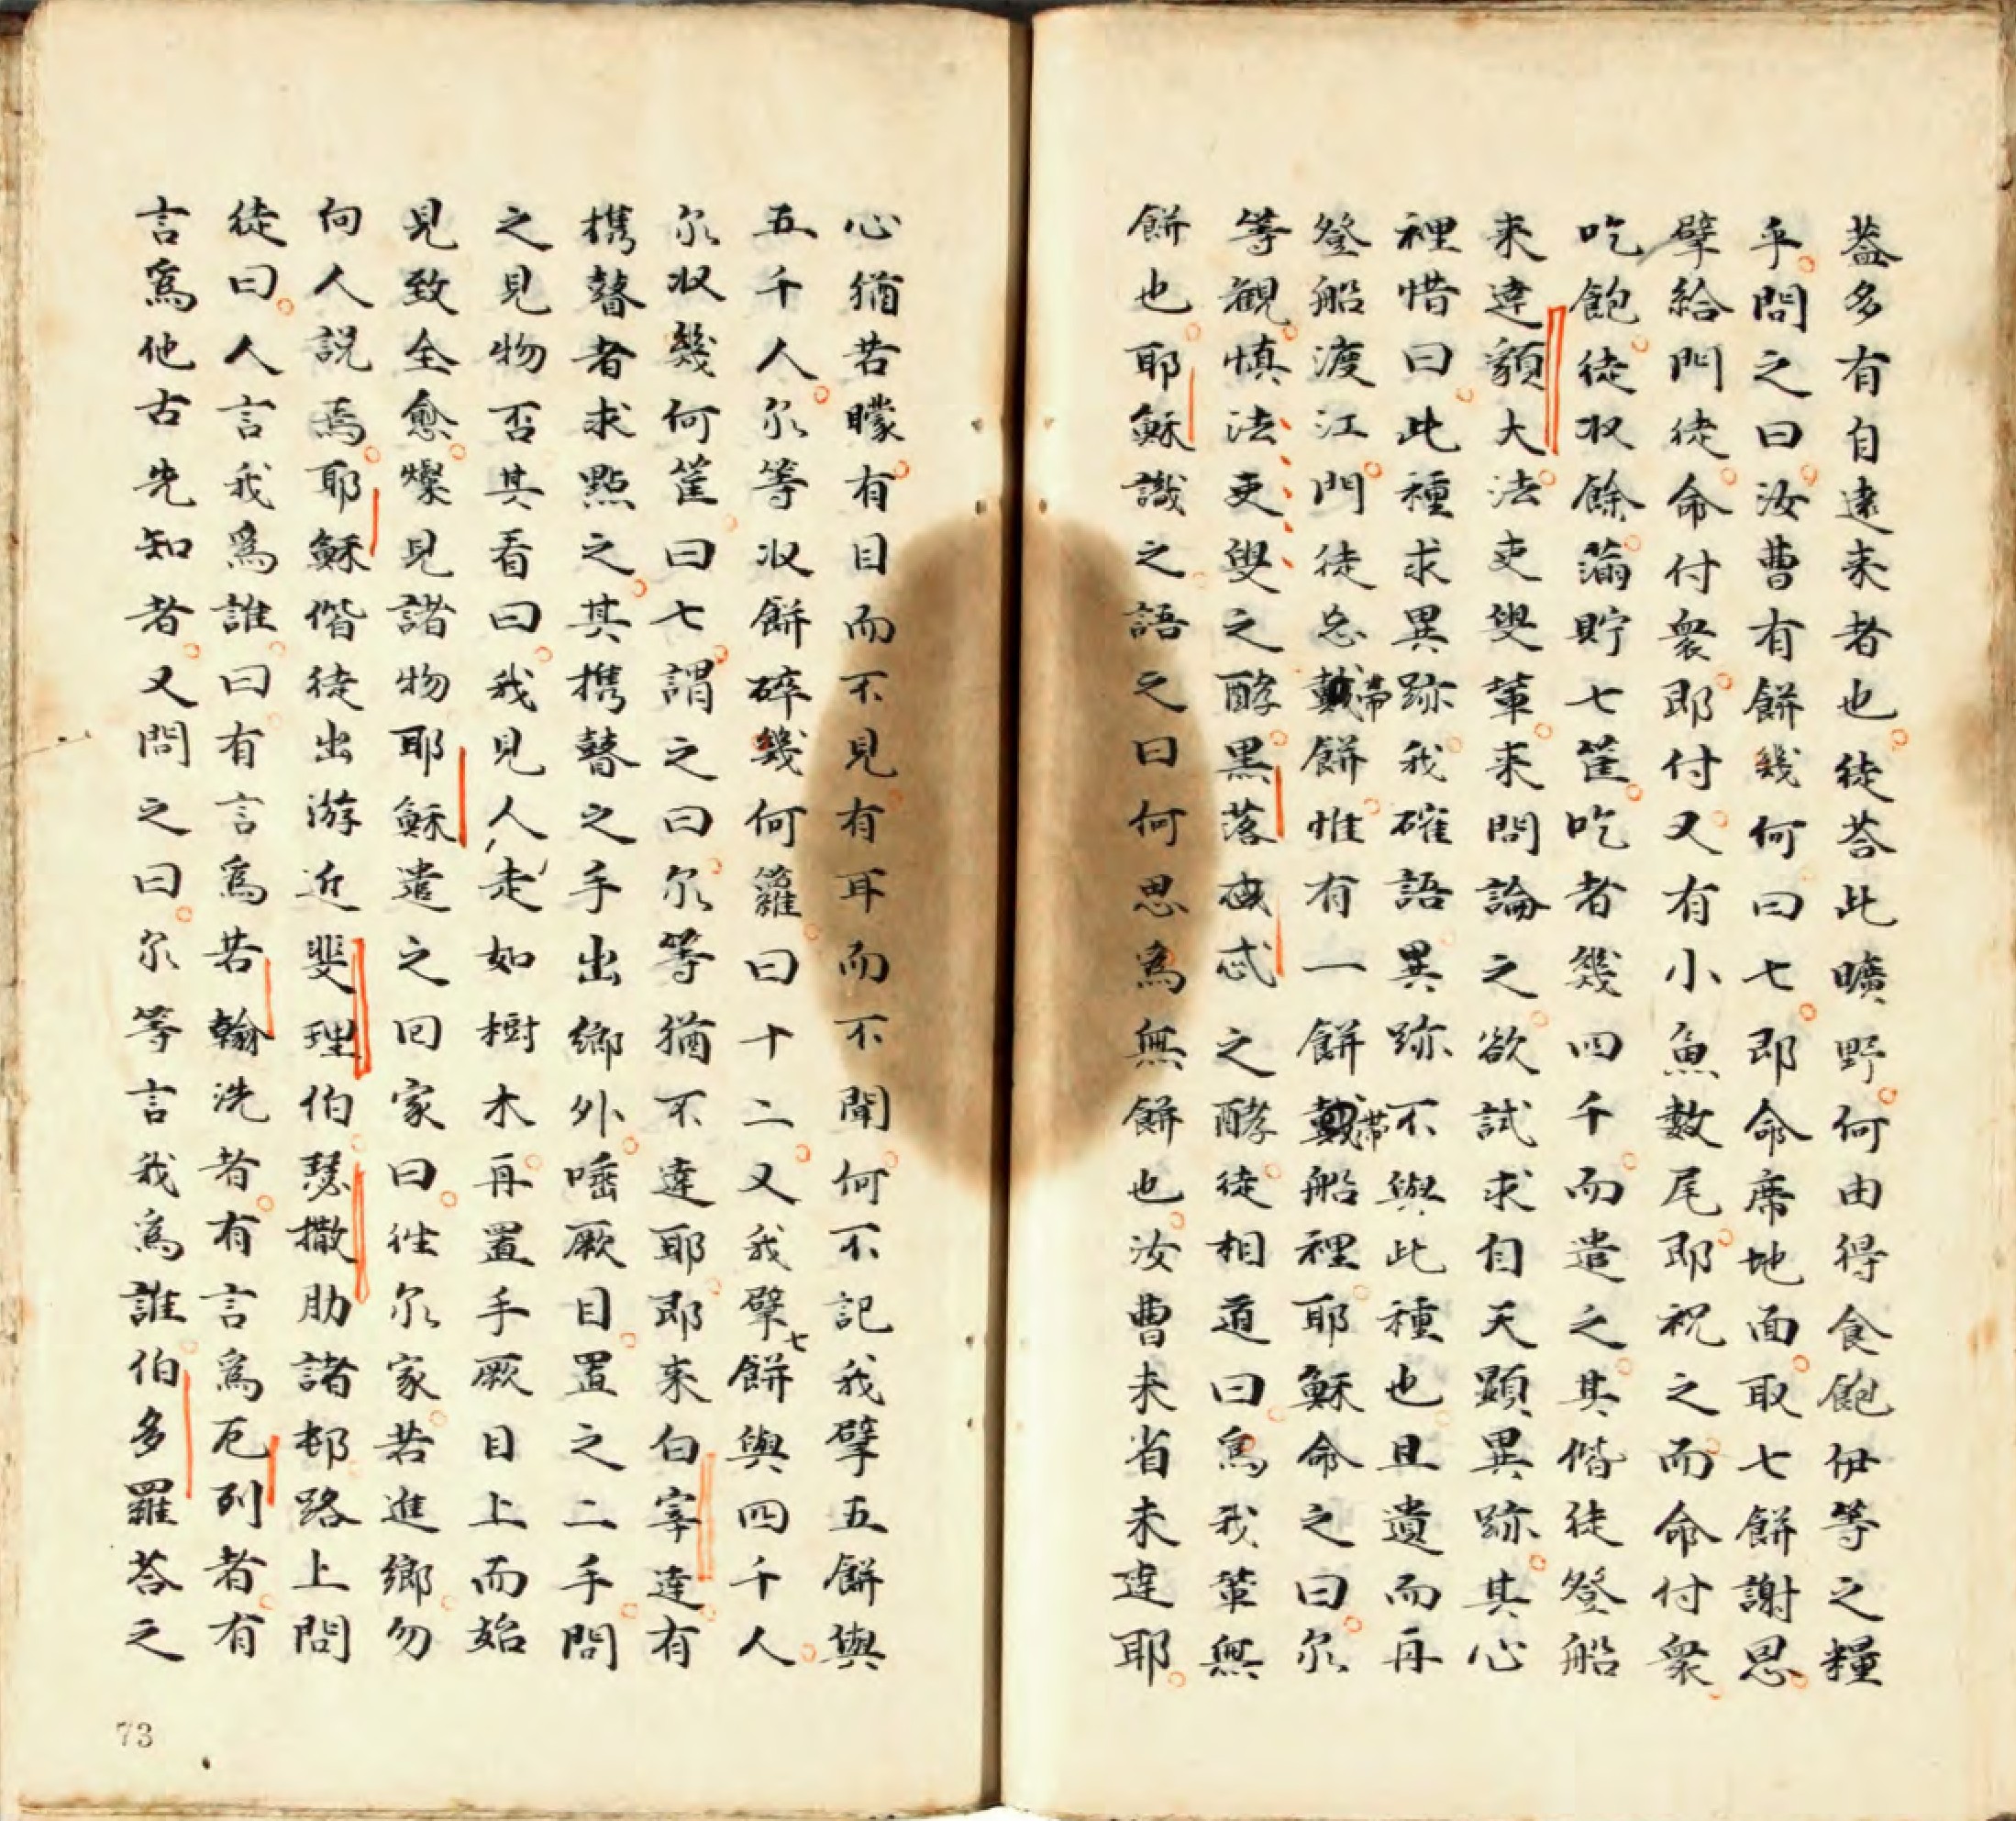 蓋多有自遠来者也徒荅此曠野何由得食飽伊等之糧
乎問之曰汝曹有餅幾何曰七即命席地面取七餅謝恩
擘給門徒命付衆即付又有小魚數尾耶祝之而命付衆
吃飽徒収餘蒲貯七筐吃者幾四千而遣之其偕徒登船
来達額大法吏叟軰来問論之欲試求自天顕異跡其心
裡惜曰此種求異跡我確語異跡不與此種也且遺而再
登船渡江門徒忘帶餅惟有一餅帶船裡耶穌命之曰尔
等観慎法吏叟之酵黒落之酵徒相道曰為我軰無
餅也耶穌識之語之曰何思為無餅也汝曹未省未達耶
心猶若矇有目而不見有耳而不聞何不記我擘五餅與
五千人尔等収餅碎幾何籮曰十二又我擘七餅與四千人
尔収幾何筐曰七謂之曰尔等猶不達耶即来白宰達有
携瞽者求點之其携瞽之手出鄉外唾厥目置之二手問
之見物否其看曰我見人走如樹木再置手厥目上而始
見致全愈燦見諸物耶穌遣之回家曰徃尔家若進鄉勿
向人説焉耶穌偕徒出游近斐理伯瑟撒肋諸邨路上問
徒曰人言我為誰曰有言為若翰洗者有言為厄列者有
言為他古先知者又問之曰尔等言我為誰伯多羅荅之
73